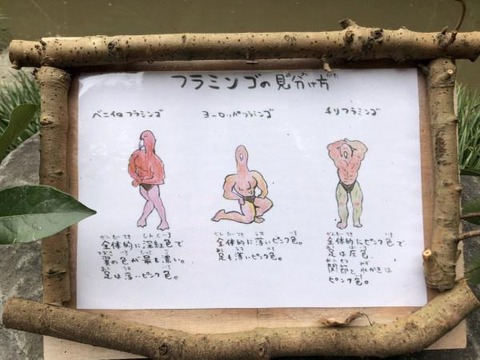 フラミンゴの見分け方
ベニイロフラミンゴ
全体的に深紅色で
翼の色が最も濃い。
足は薄いピンク色。
ヨーロッパフラミンゴ
全体的に薄いピンク色。
足も薄いピンク色。
チリフラミンゴ
全体的にピンク色で
足は灰色
関節と水かきは
ピンク色。